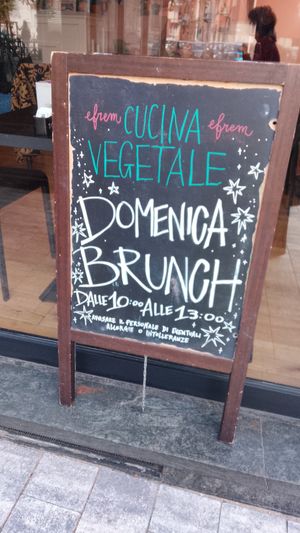 efrem CUCINA efrem
VEGETALE
DOMENICA
BRUNCH
DALLE 10:00 ALLE 13:00
AVVISARE IL PERSONALE DI EVENTUALI
ALLERGIE O INTOLLERANZE